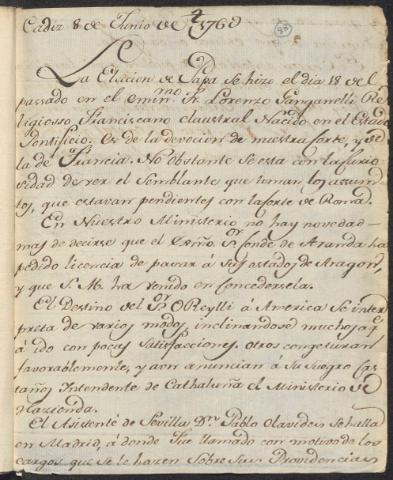 Cadiz 8 de Junio de 1769
La Eleccion de Papa se hizo el dia 18 del
pasado en el Emin.mo Fr. Lorenzo Ganganelli Re-
ligiosso Franciscano claustral Nacido en el Estado
Pontificio. Es de la devocion de nuestra Corte, y de
la de Francia. No obstante se esta con la curio-
sidad de ver el Semblante que toman los assun-
tos, que estavan pendientes con la Corte de Roma.
En Nuestro Ministerio no hay novedad
mas de decirse que el Exmo. S.r Conde de Aranda ha
pedido licencia de pasar á sus estados de Aragon,
y que S. M. ha venido en Concedersela.
El Destino del S.r OReylli á America se inter
preta de varios modos, inclinandose muchos á q.e
á ido con pocas Satisfacciones. Otros congeturan
favorablemente, y aun anuncian á su Suegro Cas
taños Intendente de Cathaluña el Ministerio de
Hazienda.
El Asistente de Sevilla D.n Pablo Olavides se halla
en Madrid, á donde fue llamado con motivo de los
cargos que se le hazen sobre sus Providencias